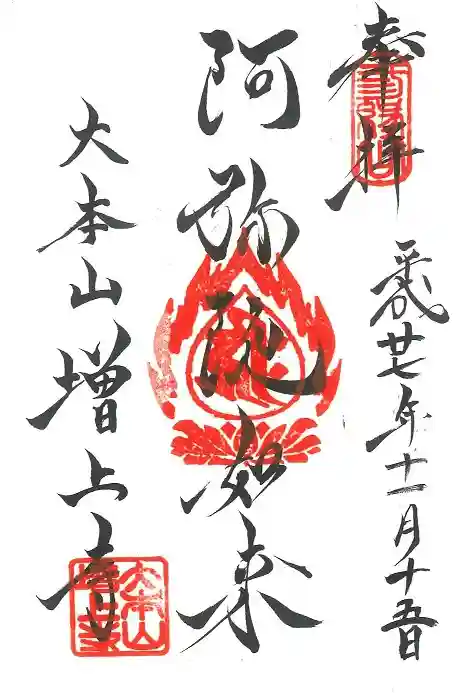 奉拝
平成廿七年十一月十五日
阿弥陀如来
大本山増上寺
大本山増上寺